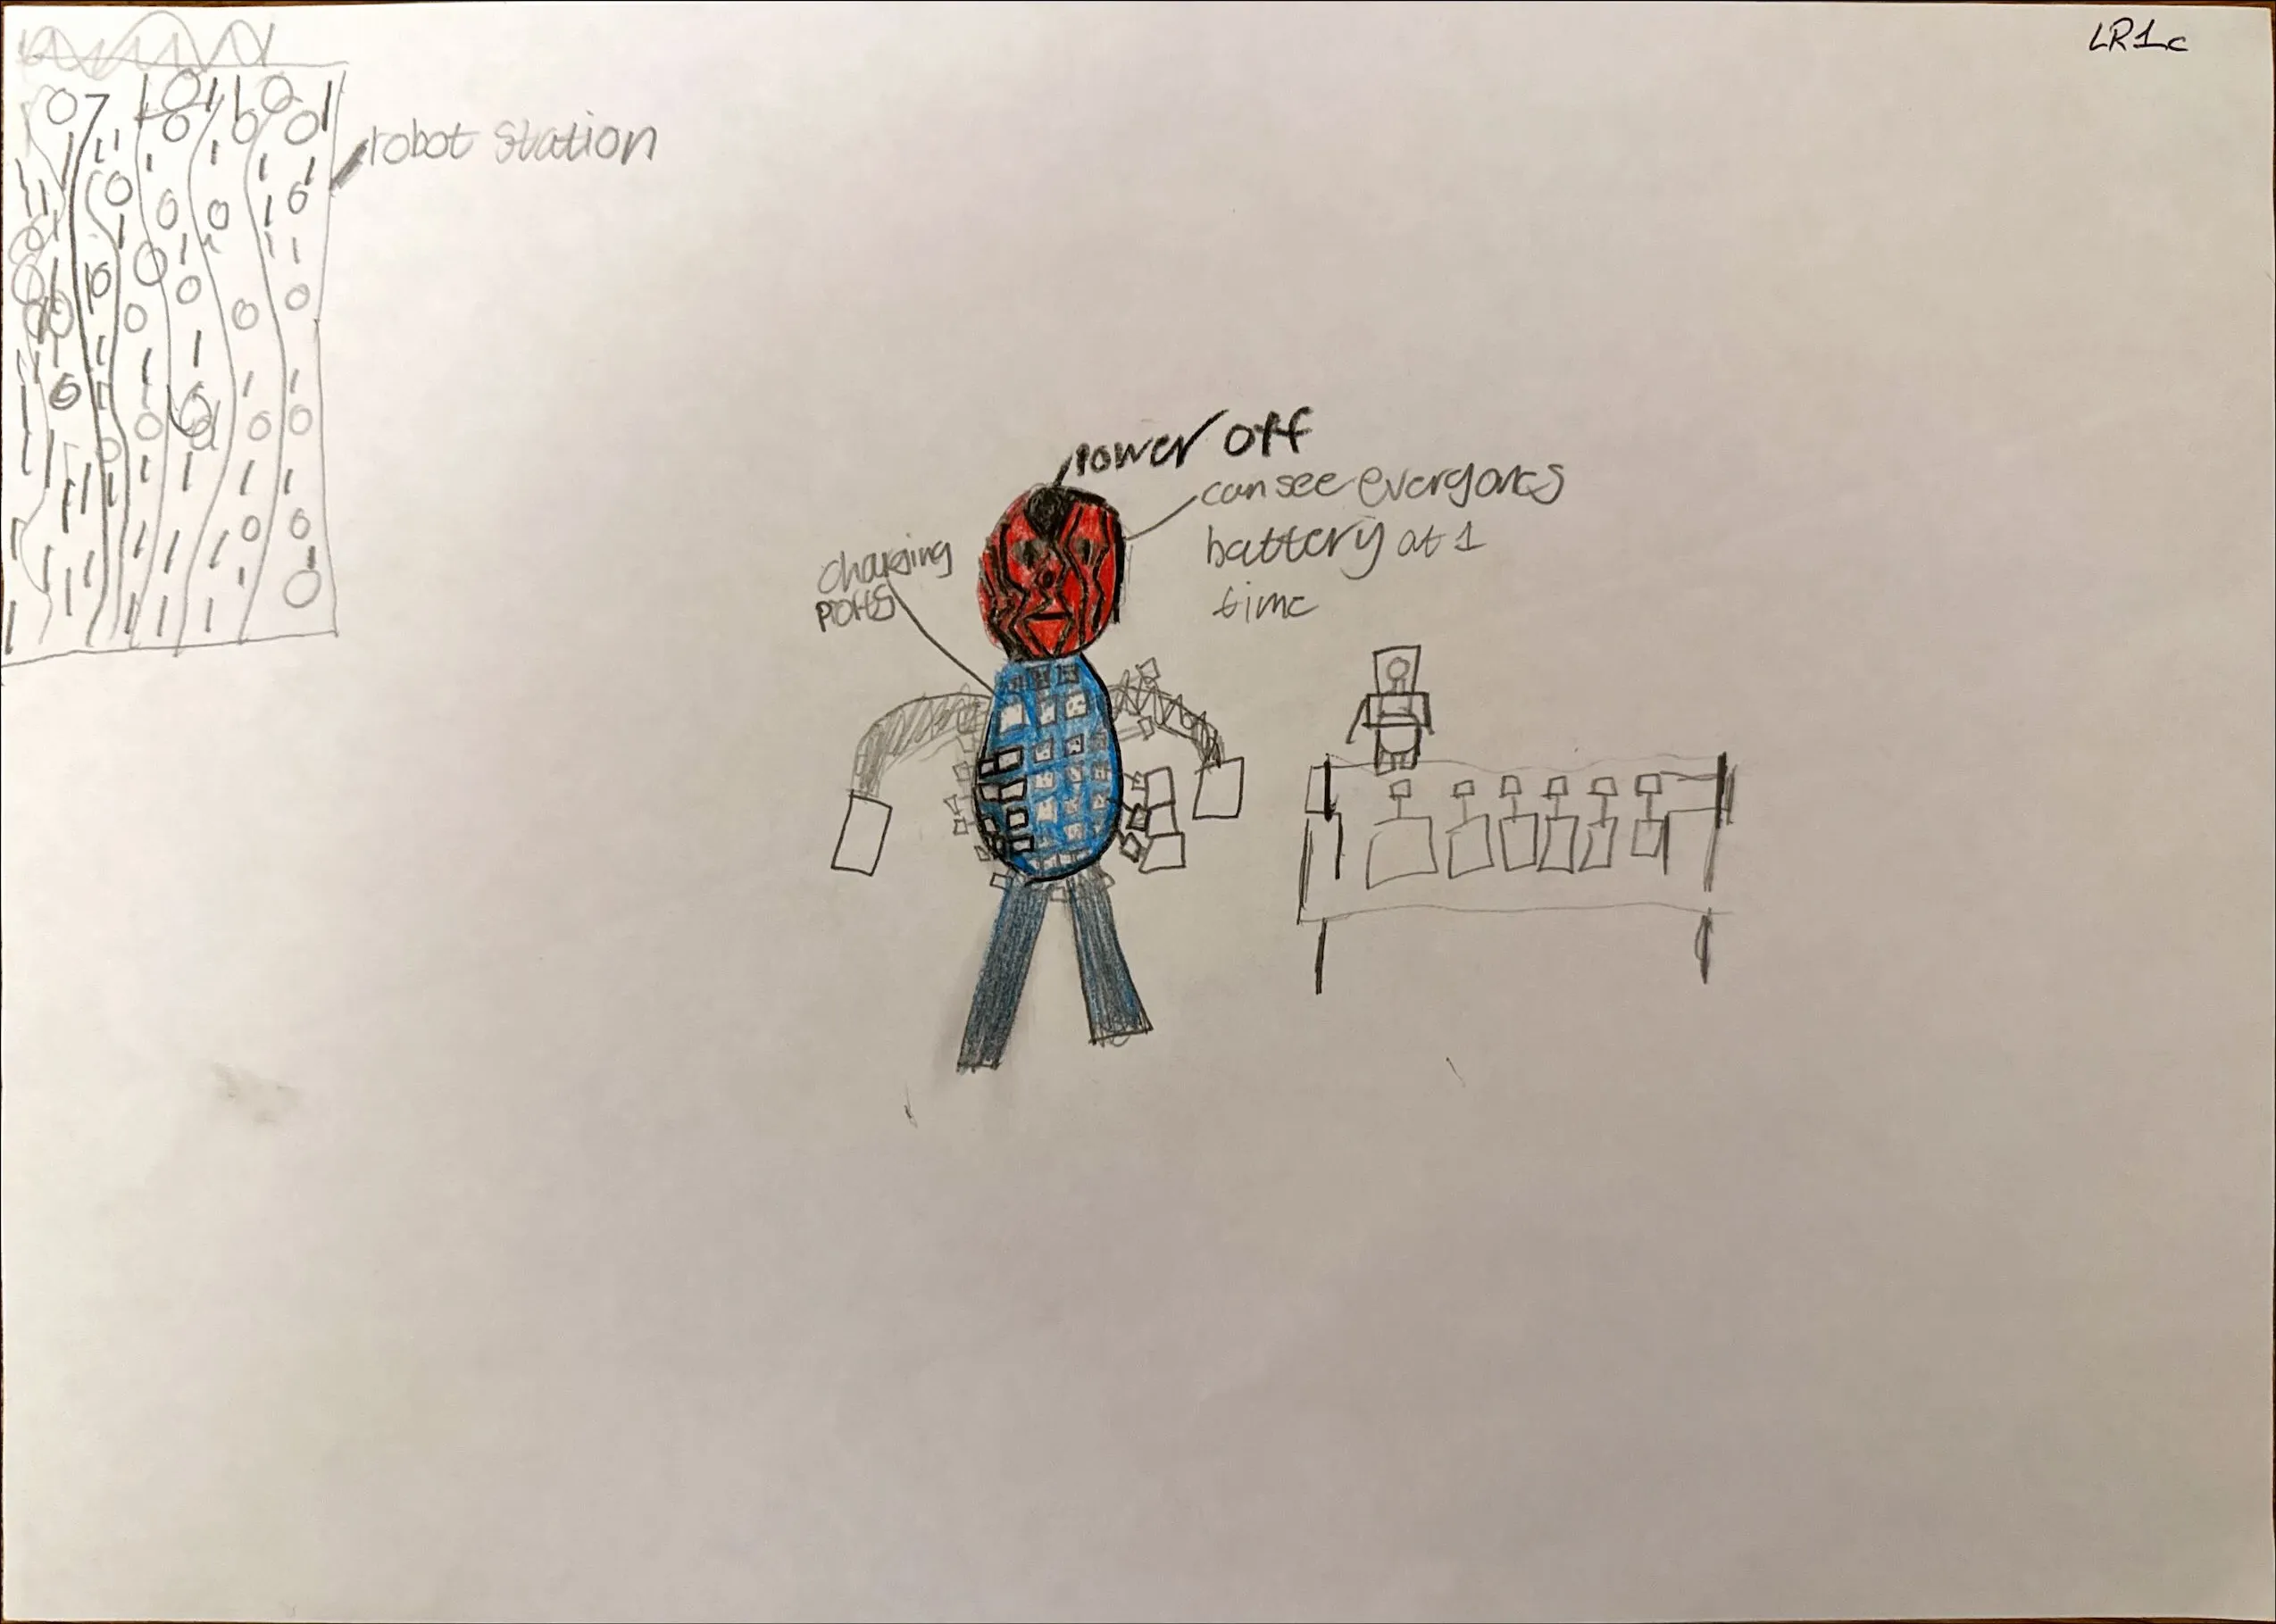 LR1c
robot station
power off
can see everyones
battery at 1
time
charging
ports